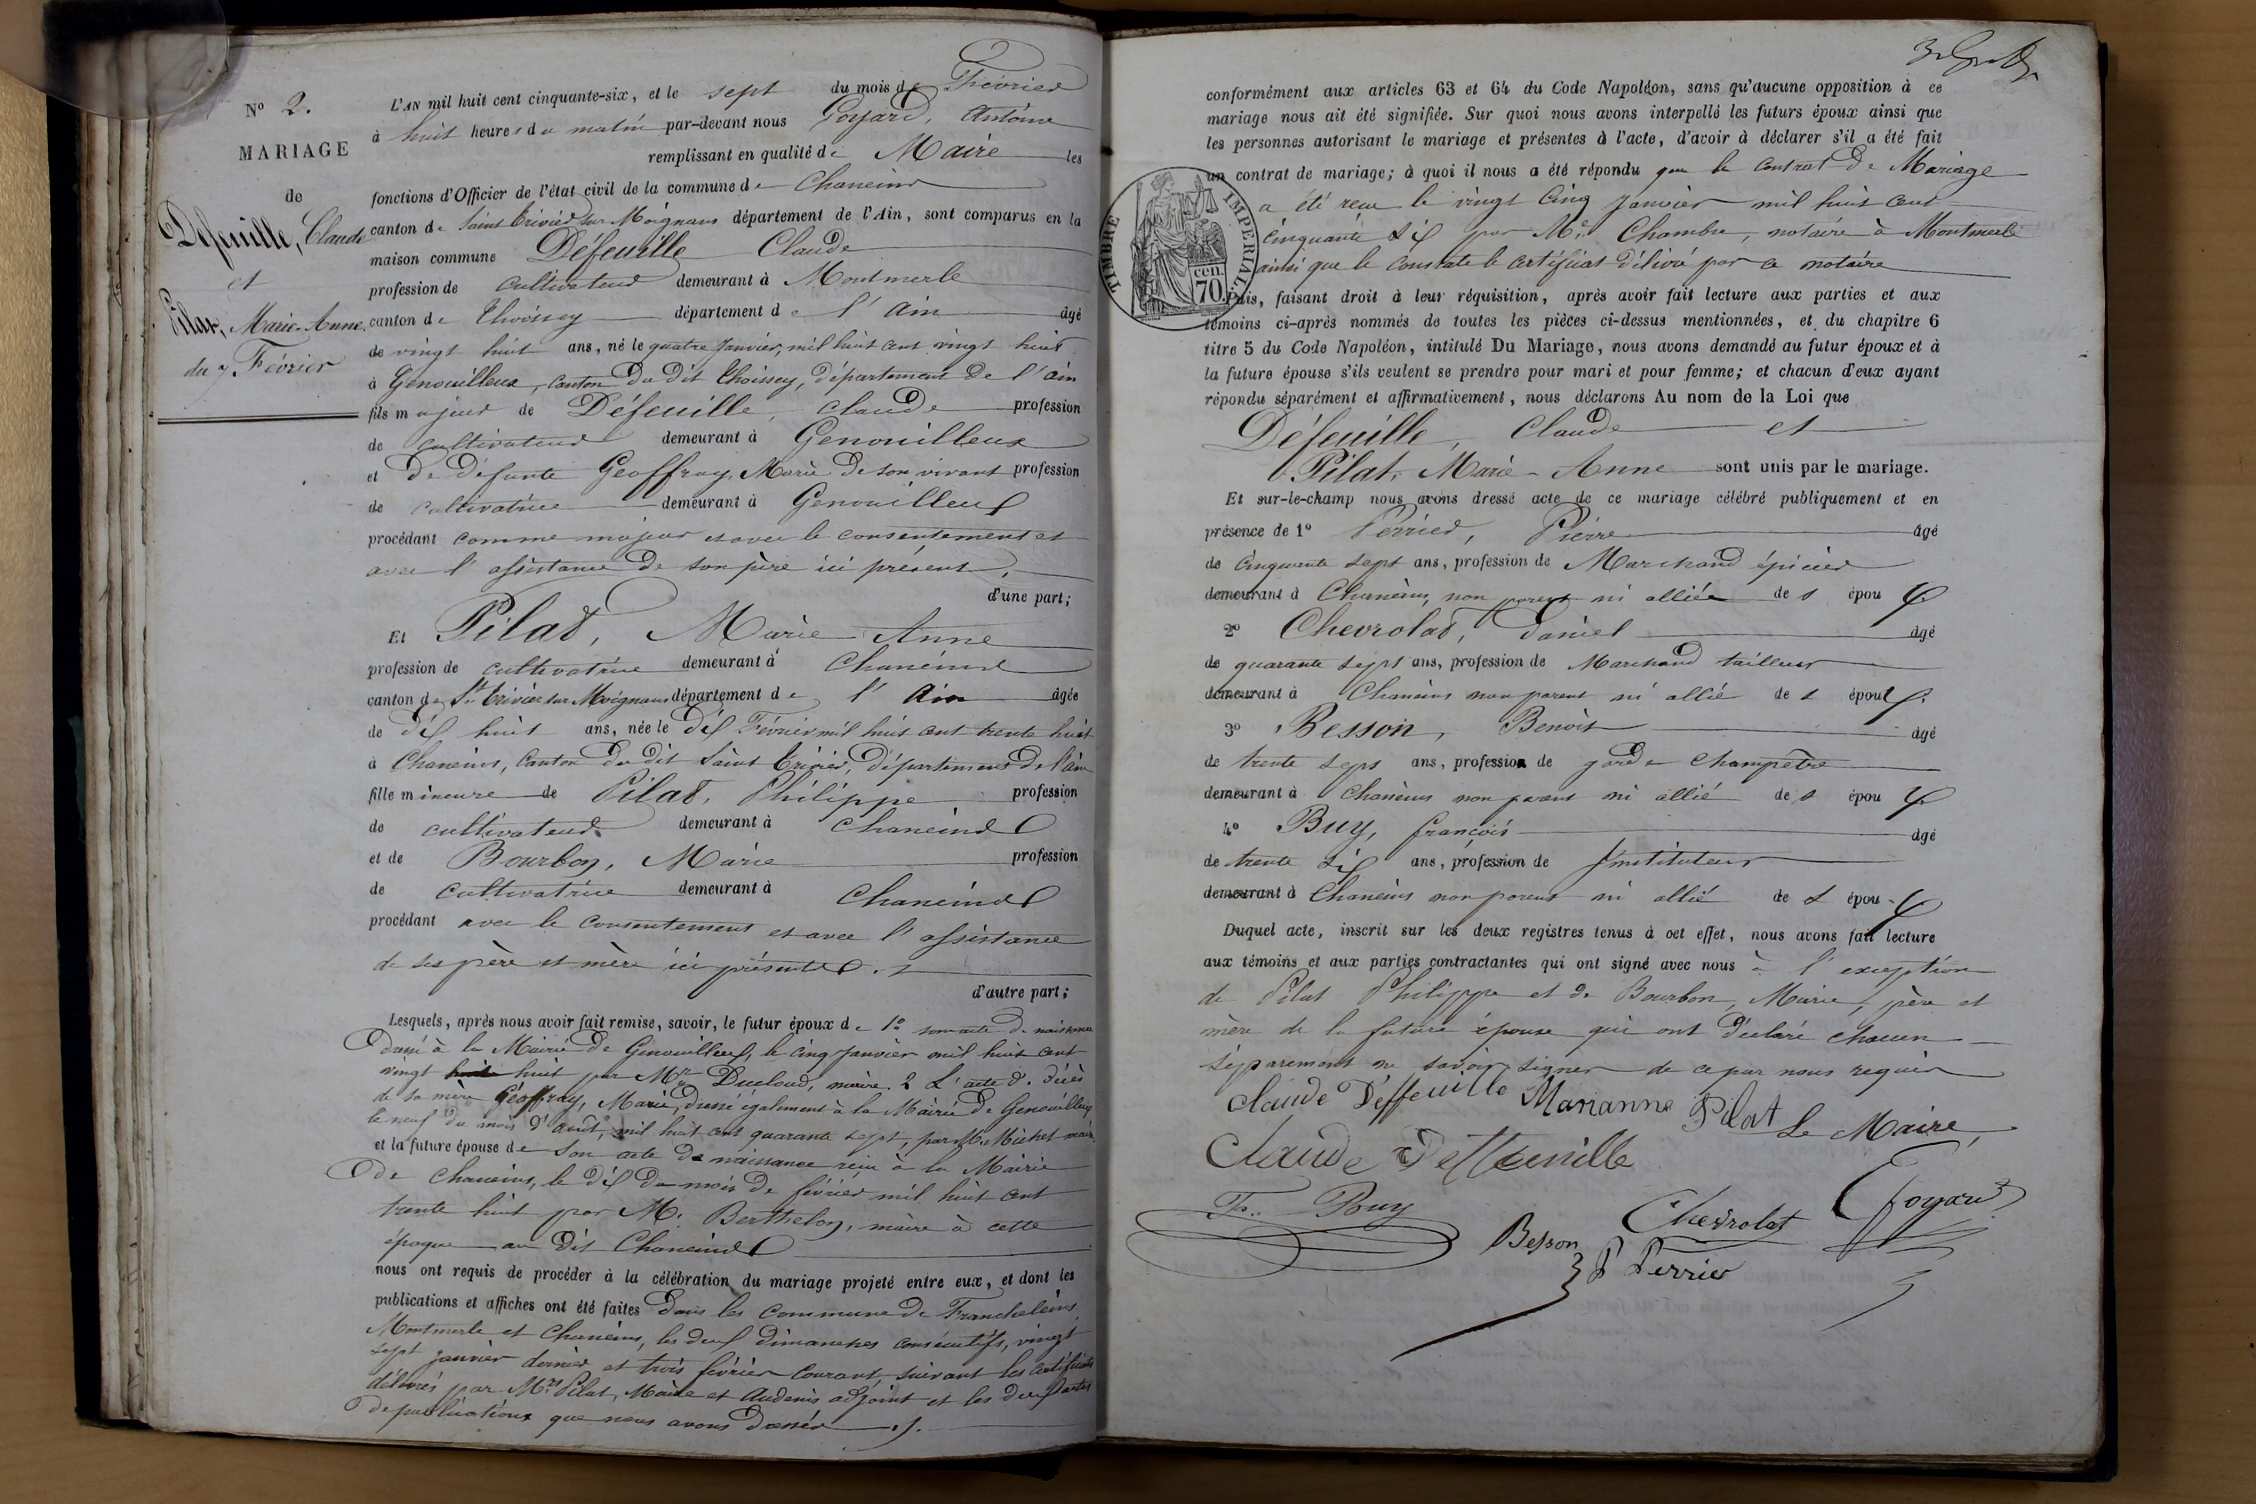 N° 2.
MARIAGE
de
Défeuille, Claude
et
Pilat, Marie-Anne.
du 7 Février
L'AN mil huit cent cinquante-six, et le sept du mois de Février
à huit heures du matin par-devant nous Goyard, Antoine
remplissant en qualité de Maire les
fonctions d'Officier de l'état civil de la commune de Chaneins
canton de Saint Trivier sur Moignans département de l'Ain, sont comparus en la
maison commune Défeuille Claude
profession de cultivateur demeurant à Montmerle
canton de Thoissey département de l'Ain âgé
de vingt huit ans, né le quatre Janvier, mil huit cent vingt huit
à Genouilleux, canton du dit Thoissey, département de l'Ain
fils majeur de Défeuille, Claude profession
de cultivateur demeurant à Genouilleux
et de défunte Geoffray, Marie de son vivant profession
de cultivatrice demeurant à Genouilleux
procédant comme majeur et avec le consentement et
avec l'assistance de son père ici présent,
d'une part;
Et Pilat, Marie Anne
profession de cultivatrice demeurant à Chaneins
canton de St Trivier sur Moignans département de l'Ain âgée
de dix huit ans, née le dix Février mil huit cent trente huit
à Chaneins, canton du dit Saint Trivier, département de l'Ain
fille mineure de Pilat, Philippe profession
de cultivateur demeurant à Chaneins
et de Bourbon, Marie profession
de cultivatrice demeurant à Chaneins
procédant avec le consentement et avec l'assistance
de ses père et mère ici présents.
d'autre part;
Lesquels, après nous avoir fait remise, savoir, le futur époux de 1° son acte de naissance
dressé à la Mairie de Genouilleux, le cinq Janvier mil huit cent
vingt huit par Mr Ducloud, maire. 2 L'acte de décès
de sa mère Géoffray, Marie, dressé également à la Mairie de Genouilleux
le neuf du mois d'août, mil huit cent quarante sept, par M. Michel maire
et la future épouse de son acte de naissance reçu à la Mairie
de Chaneins, le dix du mois de février mil huit cent
trente huit par M. Berthelon, maire à cette
époque au dit Chaneins
nous ont requis de procéder à la célébration du mariage projeté entre eux, et dont les
publications et affiches ont été faites dans les commune de Francheleins
Montmerle et Chaneins, les deux dimanches consécutifs, vingt
sept janvier dernier et trois février courant, suivant les certificats
délivrés par Mrs Pilat, Maire et Audenis adjoint et les deux actes
de publications que nous avons dressés
conformément aux articles 63 et 64 du Code Napoléon, sans qu'aucune opposition à ce
mariage nous ait été signifiée. Sur quoi nous avons interpellé les futurs époux ainsi que
les personnes autorisant le mariage et présentes à l'acte, d'avoir à déclarer s'il a été fait
un contrat de mariage; à quoi il nous a été répondu que le contrat de Mariage
a été reçu le vingt cinq Janvier mil huit cent
cinquante six par Me Chambre, notaire à Montmerle
ainsi que le constate le certificat délivré par ce notaire
TIMBRE IMPERIAL
70 cen.
Puis, faisant droit à leur réquisition, après avoir fait lecture aux parties et aux
témoins ci-après nommés de toutes les pièces ci-dessus mentionnées, et du chapitre 6
titre 5 du Code Napoléon, intitulé Du Mariage, nous avons demandé au futur époux et à
la future épouse s'ils veulent se prendre pour mari et pour femme; et chacun d'eux ayant
répondu séparément et affirmativement, nous déclarons Au nom de la Loi que
Défeuille, Claude et
Pilat, Marie-Anne sont unis par le mariage.
Et sur-le-champ nous avons dressé acte de ce mariage célébré publiquement et en
présence de 1° Perrier, Pierre âgé
de cinquante sept ans, profession de Marchand épicier
demeurant à Chaneins, non parent ni alliée des époux
2° Chevrolat, Daniel âgé
de quarante sept ans, profession de Marchand tailleur
demeurant à Chaneins non parent ni allié des époux
3° Besson, Benoit âgé
de trente sept ans, profession de garde champêtre
demeurant à Chaneins non parent ni allié des époux
4° Buy, françois âgé
de trente six ans, profession de Instituteur
demeurant à Chaneins non parent ni allié des époux
Duquel acte, inscrit sur les deux registres tenus à cet effet, nous avons fait lecture
aux témoins et aux parties contractantes qui ont signé avec nous à l'exception
de Pilat Philippe et de Bourbon, Marie, père et
mère de la future épouse qui ont déclaré chacun
séparement ne savoir signer de ce par nous requis
Claude Deffeuille Marianne Pilat Le Maire,
Claude Deffeuille
Goyard
Fs. Buy Chevrolat
Besson P Perrier